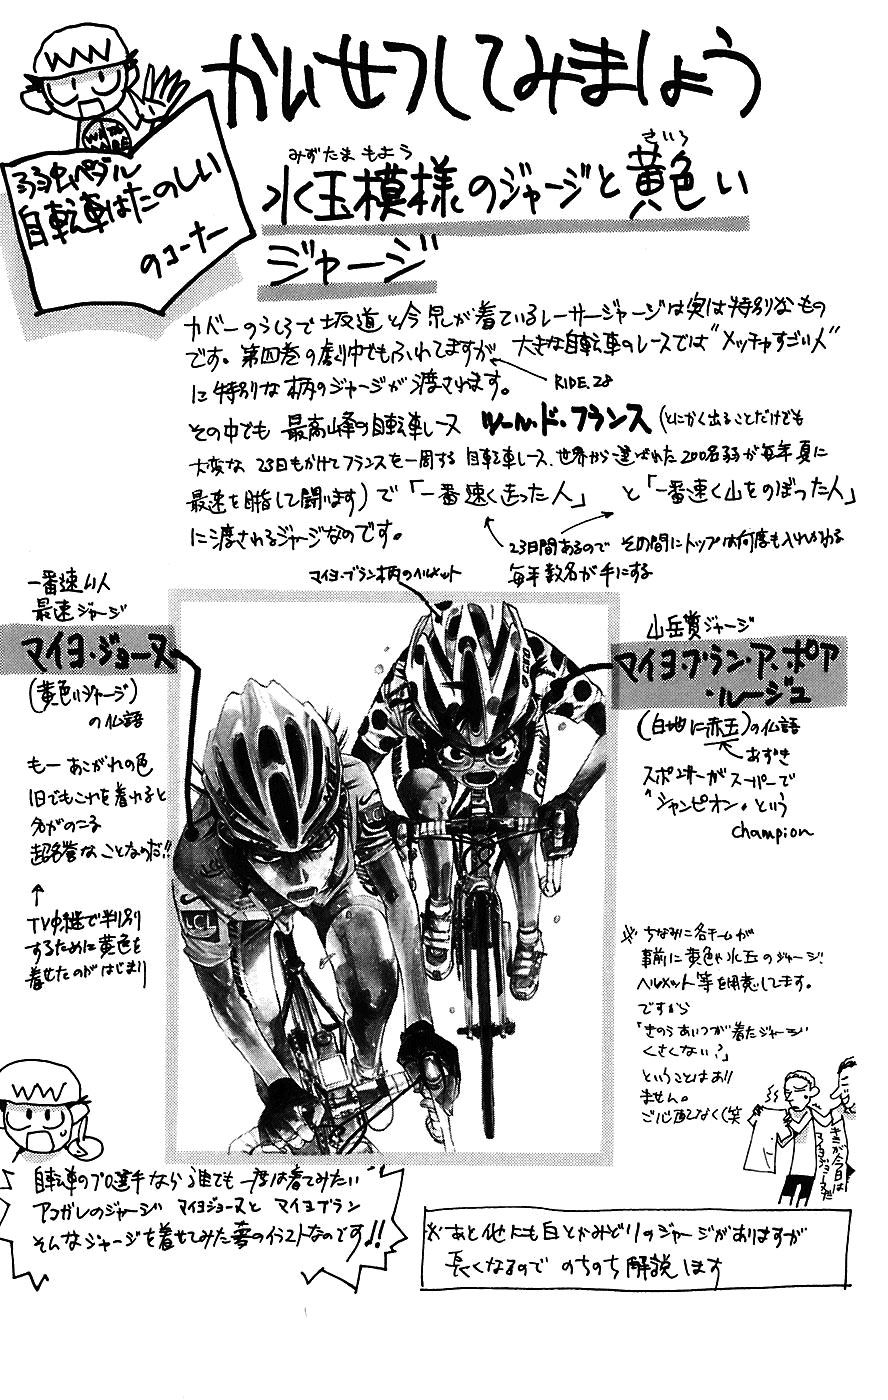 かいせつしてみましょう
弱虫ペダル
自転車はたのしい
のコーナー
みずたま もよう
きいろ
水玉模様のジャージと黄色い
ジャージ
カバーのうしろで坂道と今泉が着ているレーサージャージは実は特別なもの
です。第四巻の劇中でもふれてますが、大きな自転車のレースでは"メッチャすごい人"
に特別な柄のジャージが渡されます。
RIDE.28
その中でも 最高峰の自転車レース ツール・ド・フランス(とにかく出ることだけでも
大変な 23日もかけてフランスを一周する 自転車レース、世界から選ばれた200名弱が毎年夏に
最速を目指して闘います)で「一番速く走った人」 と「一番速く山をのぼった人」
に渡されるジャージなのです。
23日間あるので その間にトップは何度も入れかわる
毎年数名が手にする
マイヨ・ブラン柄のヘルメット
一番速い人
最速ジャージ
マイヨ・ジョーヌ
(黄色いジャージ)
の仏語
もー あこがれの色
1日でもこれを着れると
名がのこる
超名誉なことなのだ!!
TV中継で判別
するために黄色を
着せたのがはじまり
山岳賞ジャージ
マイヨ・ブラン・ア・ポア
・ルージュ
(白地に赤玉)の仏語
あずき
スポンサーがスーパーで
"シャンピオン"という
champion
LCL
※ちなみに各チームが
事前に黄色や水玉のジャージ、
ヘルメット等を用意してます。
ですから
「きのうあいつが着たジャージ
くさくない?」
ということはあり
ません。
ご心配なく(笑
キミが今日は
マイヨジョーヌだ
自転車のプロ選手なら誰でも一度は着てみたい
アコガレのジャージ マイヨジョーヌと マイヨブラン
そんなジャージを着せてみた夢のイラストなのです!!
※あと他にも白とかみどりのジャージがありますが
長くなるので のちのち解説します